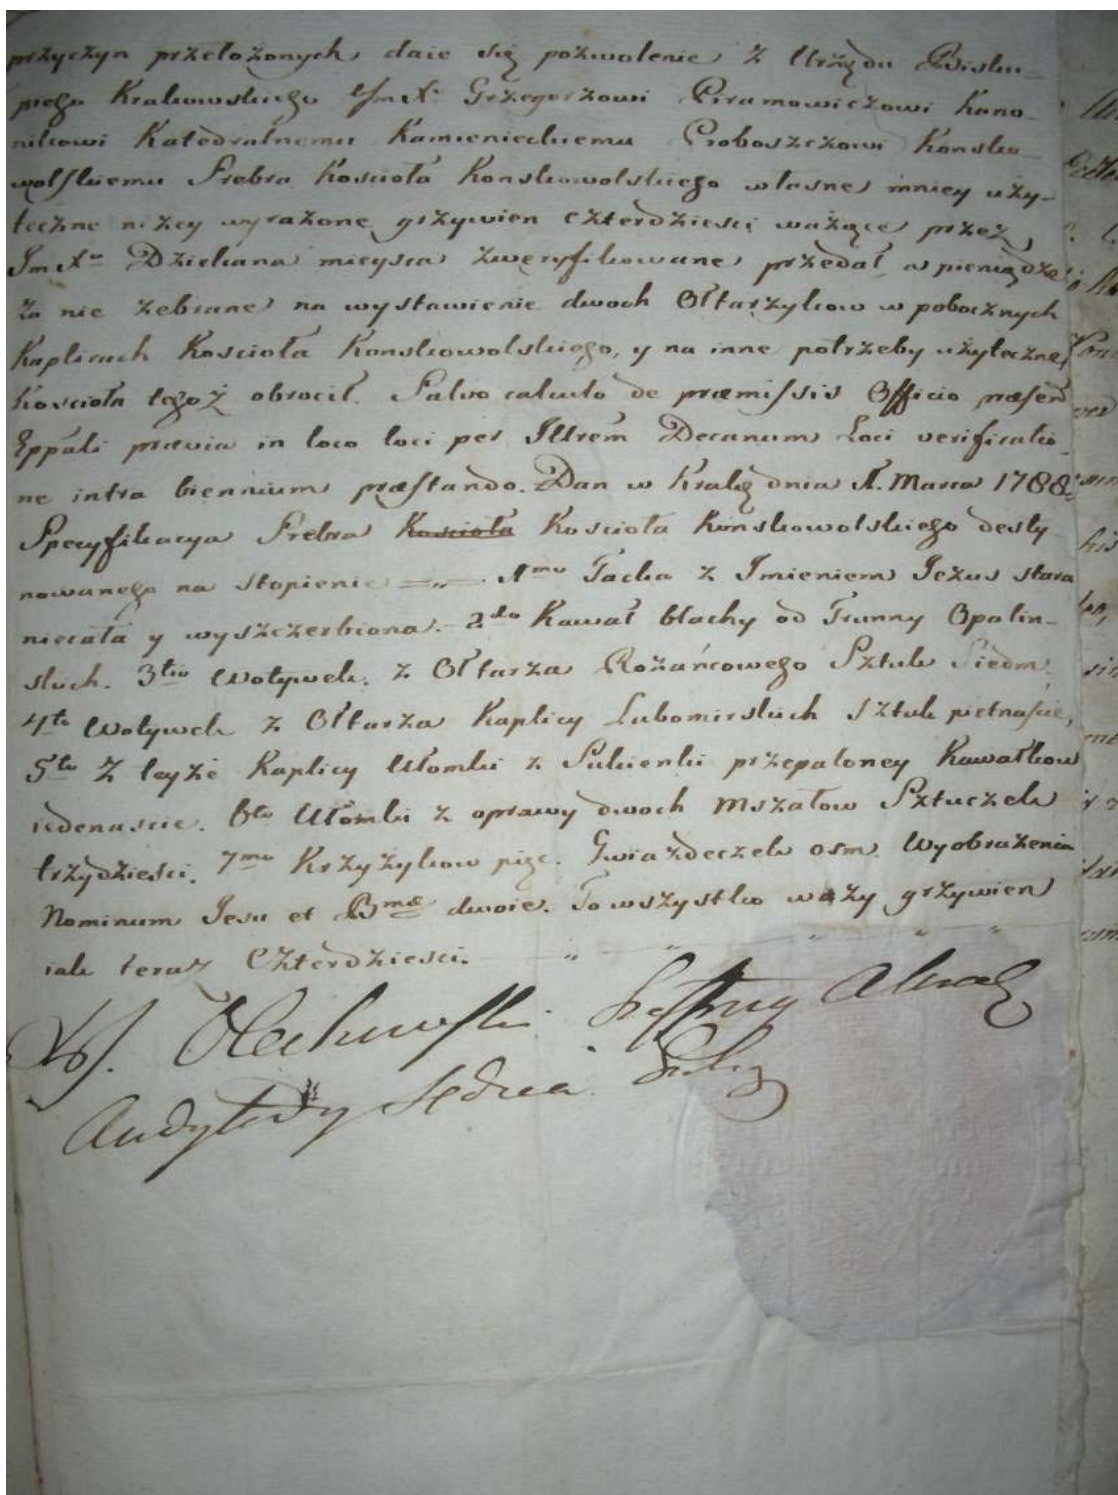 przyczyn przełożonych daie się pozwolenie z Urzędu Bisku-
piego Krakowskiego JmX. Grzegorzowi Piramowiczowi Kano-
nikowi Katedralnemu Kamienieckiemu Proboszczowi Konsko-
wolskiemu Srebra Kościoła Konskowolskiego własne mniey uży-
teczne niżey wyrażone, grzywien czterdzieści ważące przez
JmXa Dziekana mieysca zweryfikowane przedał, a pieniądze
za nie zebrane na wystawienie dwoch Ołtarzykow w pobocznych
Kaplicach Kościoła Konskowolskiego, y na inne potrzeby użyteczne
Kościoła tegoż obrocił. Salvo calculo de præmissis Officio præsenti
Eppali prævia in loco loci per Illrem Decanum Loci verificatio-
ne intra biennium præstando. Dan w Kraków dnia 1. Marca 1788.
Specyfikacya Srebra Kościoła Kościoła Konskowolskiego desty-
nowanego na stopienie 1mo Tacka z Imieniem Jezus stara
niecała y wyszczerbiona. 2do Kawał blachy od Trunny Opalin-
skich. 3tio Wotywek z Ołtarza Rożańcowego Sztuk Siedm.
4to Wotywek z Ołtarza Kaplicy Lubomirskich Sztuk pietnaście,
5to Z teyże Kaplicy Ułomki z Sukienki przepaloney Kawałkow
iedenascie. 6to Ułomki z oprawy dwoch Mszałow Sztuczek
trzydzieści. 7mo Krzyżykow pięć. Gwiazdeczek osm. Wyobrażenia
Nominum Jesu et Bmæ dwoie. To wszystko waży grzywien
iak teraz Czterdzieści.
X. J. Olechowski
Audytor Sędzia